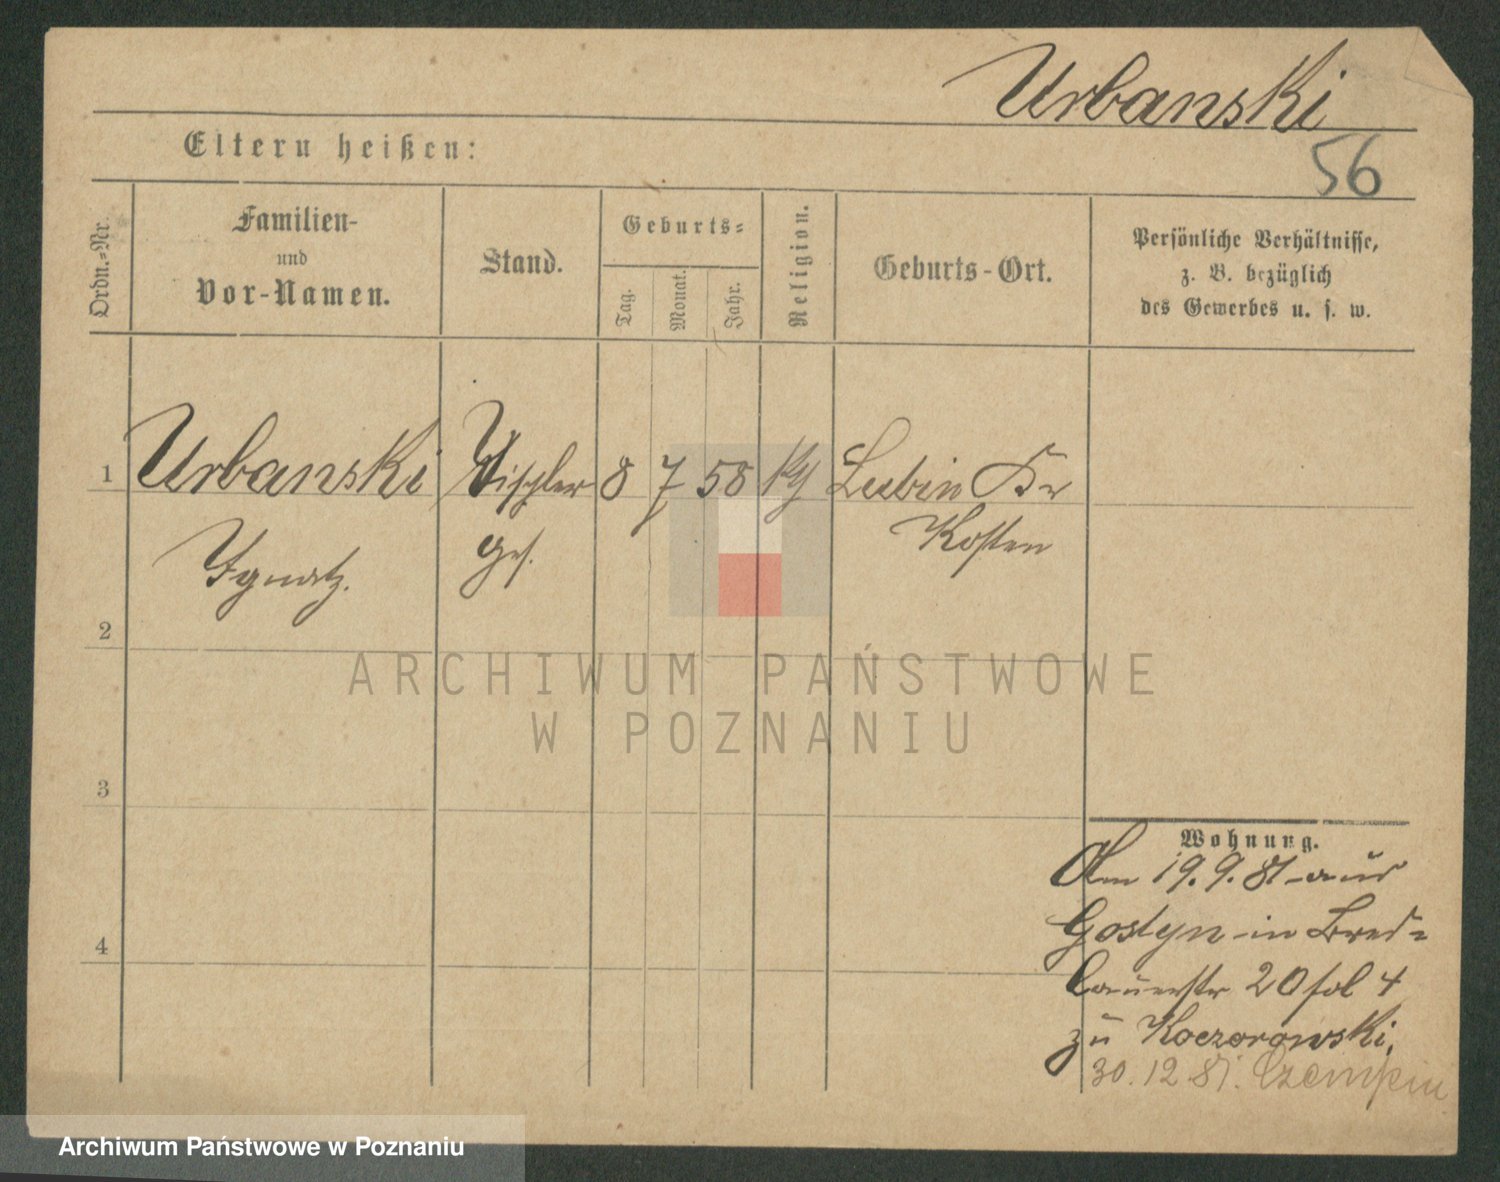 Urbanski
56
Eltern heißen:
Ordn.-Nr.
Familien-
und
Vor-Namen.
Stand.
Geburts-
Tag.
Monat.
Jahr.
Religion.
Geburts-Ort.
Persönliche Verhältnisse,
z. B. bezüglich
des Gewerbes u. s. w.
1 Urbanski Tischler 8 7 58 Lubin Kr
Ignatz. ges. Kosten
2
3
4
Wohnung.
Am 19.9.81 aus
Gostyn in Bres=
lauerstr 20 fol 4
zu Koczorowski.
30.12.81. Czempin
ARCHIWUM PAŃSTWOWE
W POZNANIU
Archiwum Państwowe w Poznaniu